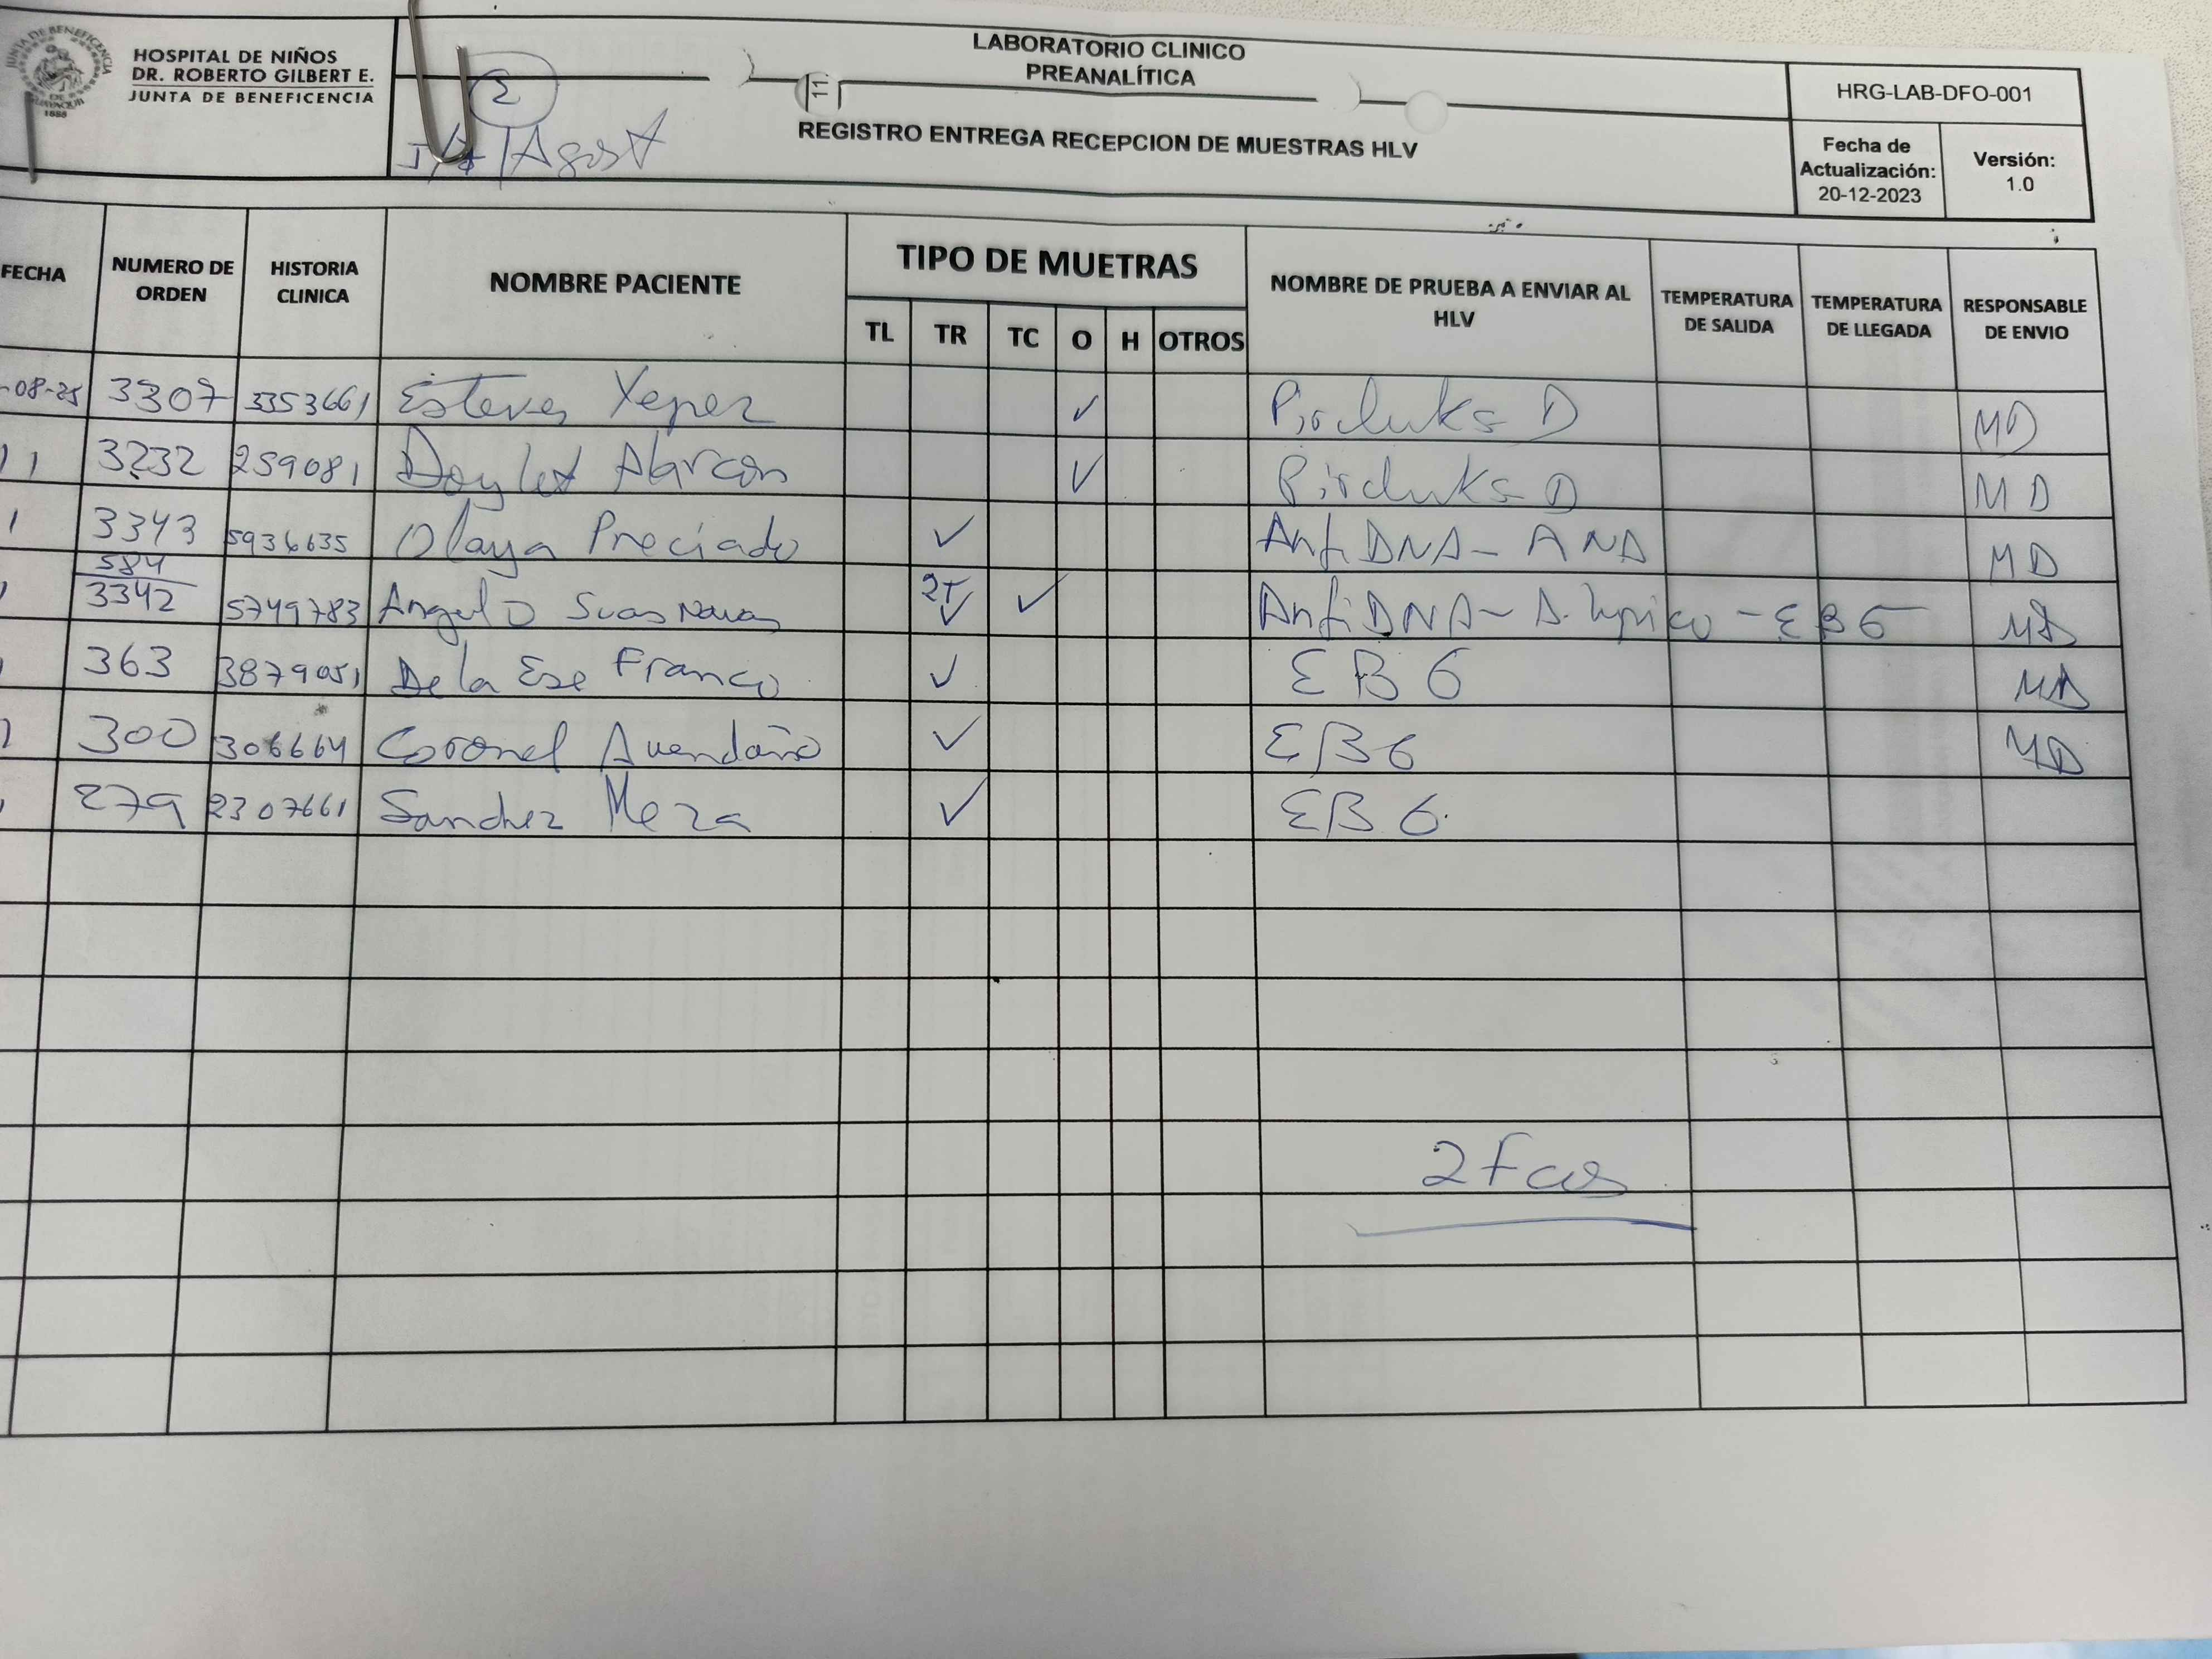 HOSPITAL DE NIÑOS
DR. ROBERTO GILBERT E.
JUNTA DE BENEFICENCIA
2
Agost
LABORATORIO CLINICO
PREANALÍTICA
REGISTRO ENTREGA RECEPCION DE MUESTRAS HLV
HRG-LAB-DFO-001
Fecha de Actualización: 20-12-2023
Versión: 1.0
FECHA NUMERO DE ORDEN HISTORIA CLINICA NOMBRE PACIENTE TIPO DE MUETRAS NOMBRE DE PRUEBA A ENVIAR AL HLV TEMPERATURA DE SALIDA TEMPERATURA DE LLEGADA RESPONSABLE DE ENVIO
TL TR TC O H OTROS
-08-25 3307 3353661 Esteves Yepez ✓ D MD
3232 259081 Doylet Alarcon ✓ D MD
3343 5936635 Olaya Preciado ✓ Anti DNA - ANA MD
584
3342 5749783 Angulo Suasnavas 2T ✓ ✓ Anti DNA - A. lupico - EB6 MD
363 3879051 De la Ese Franco ✓ EB6 MD
300 306664 Coronel Avendaño ✓ EB6 MD
279 2307661 Sanchez Meza ✓ EB6